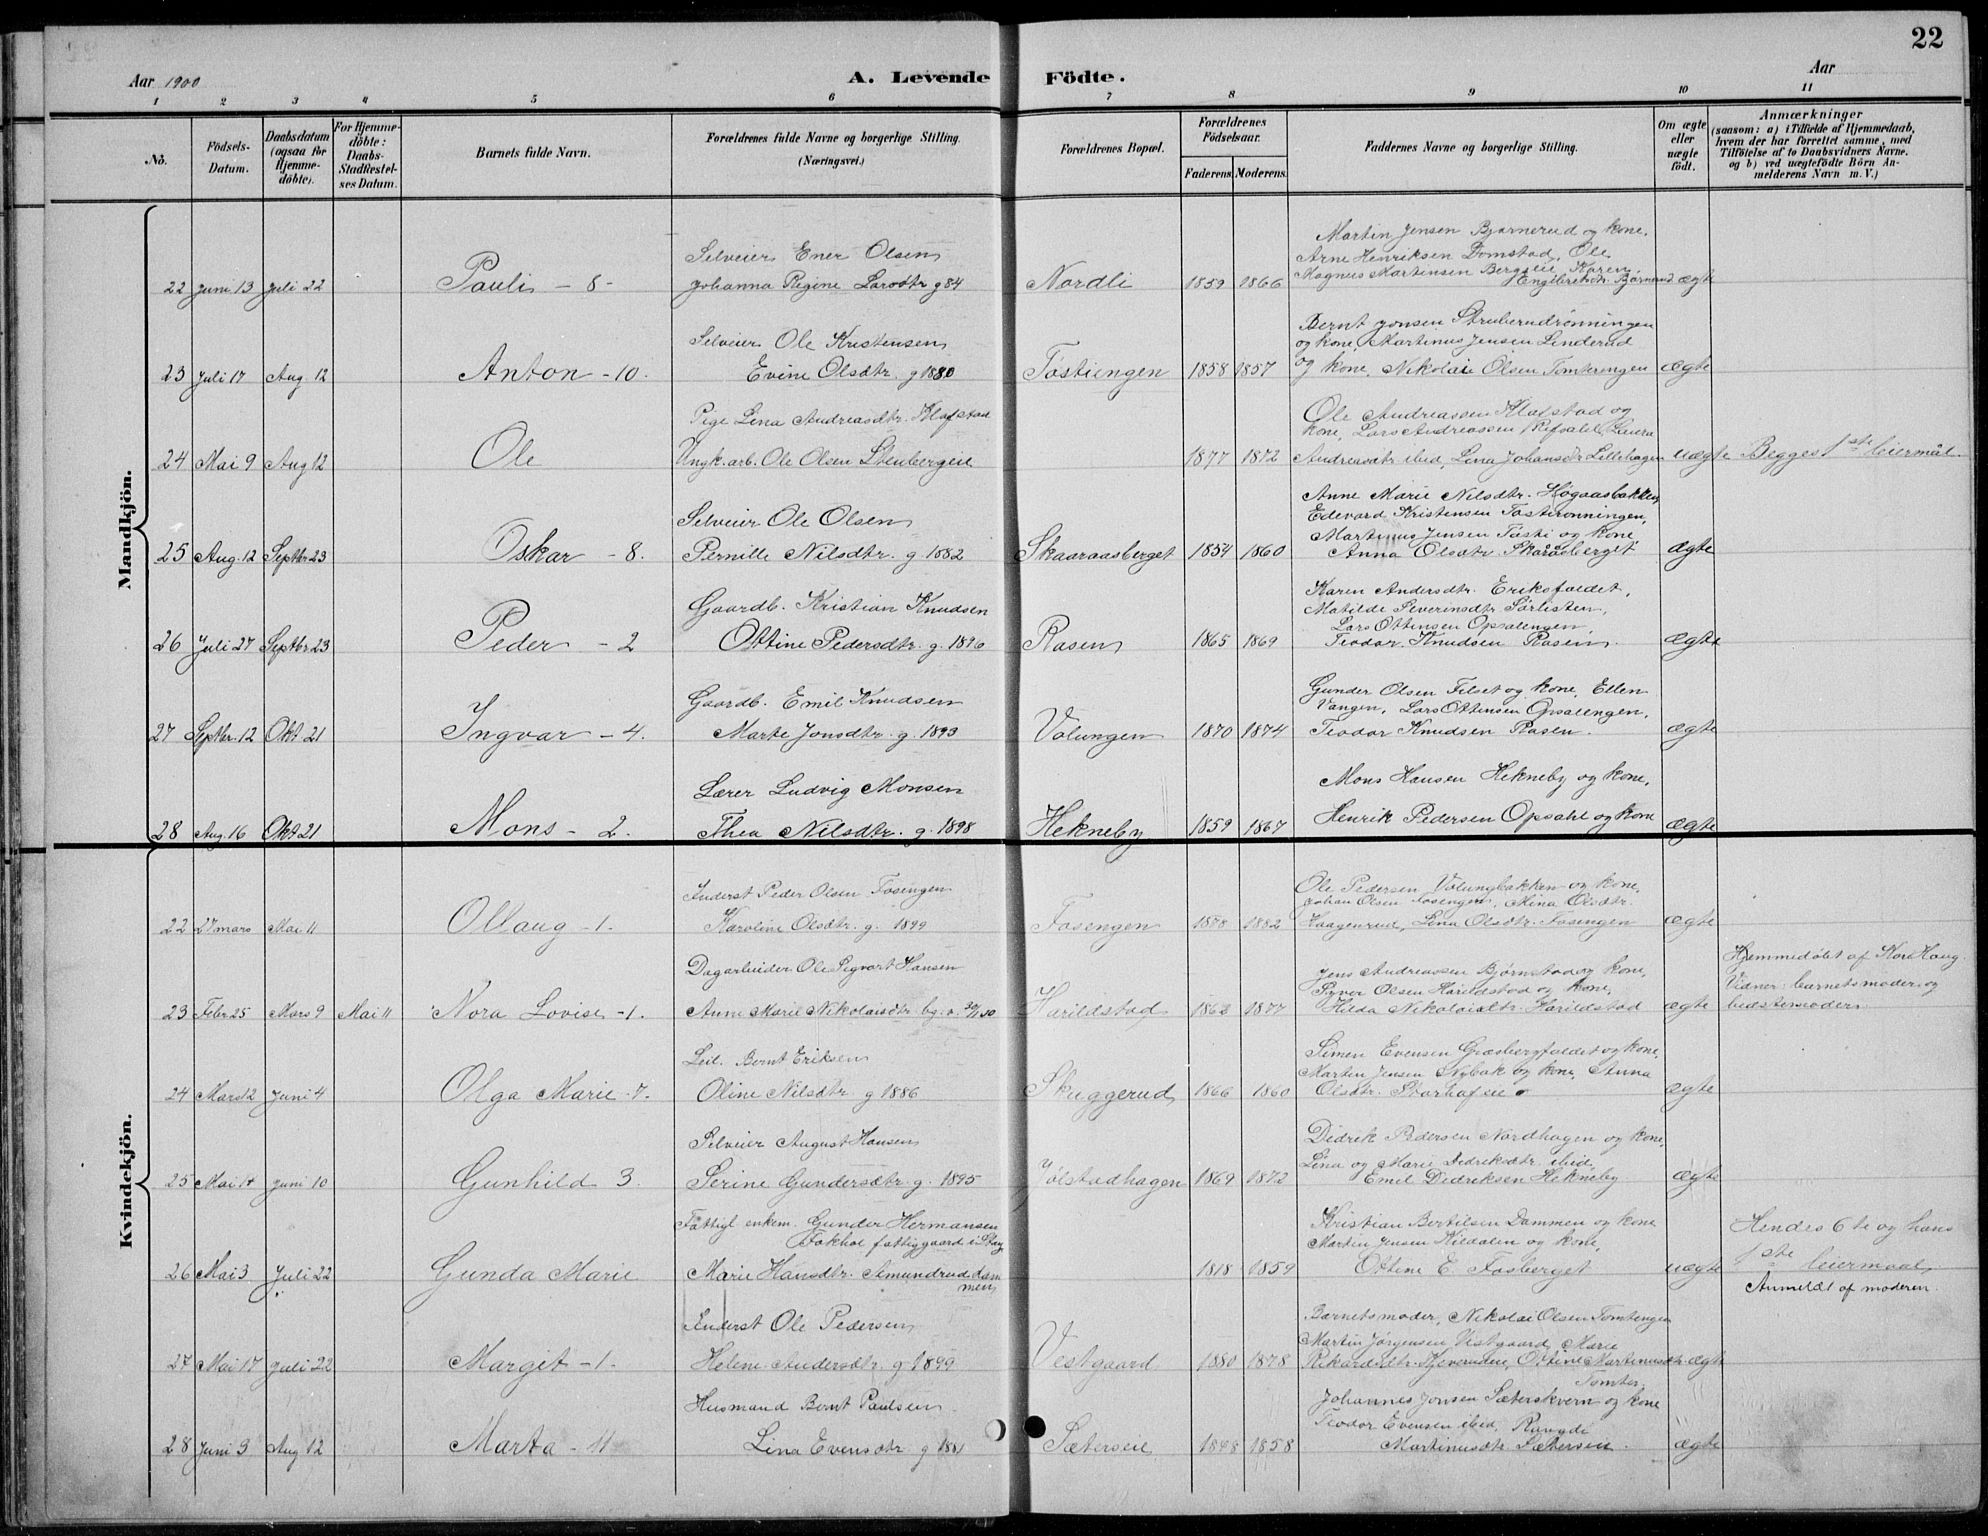 22
Aar 1900
A. Levende Födte.
Aar
1 2 3 4 5 6 7 8 9 10 11
No.
Födsels-Datum.
Daabsdatum (ogsaa för Hjemme-döbte).
For Hjemme-döbte: Daabs-Stadfæstel-ses Datum.
Barnets fulde Navn.
Forældrenes fulde Navne og borgerlige Stilling. (Næringsvei.)
Forældrenes Bopæl.
Forældrenes Födselsaar.
Faderens Moderens
Faddernes Navne og borgerlige Stilling.
Om ægte eller uægte födt.
Anmærkninger
(saasom: a) i Tilfælde af Hjemmedaab, hvem der har forrettet samme, med Tilföielse af to Daabsvidners Navne. og b) ved uægtefödte Börn An-melderens Navn m. V.)
Mandkjön.
Selveier Ener Olsen
Martin Jensen Bjørnerud og kone,
Arne Henriksen Domstad, Ole
Magnus Martensen Bergseie, Karen
22 Juni 13 Juli 22 Pauli - 8 - Johanna Regine Larsdtr g 84 Nordli 1859 1866 Engebretsdtr. Bjørnerud ægte
Selveier Ole Kristensen
Bernt Jonsen Struberudrønningen
og kone, Martinus Jensen Linderud
23 Juli 17 Aug. 12 Anton - 10. Evine Olsdtr. g 1880 Tostiengen 1858 1857 og kone, Nikolaie Olsen Tomterengen ægte
Pige Lina Andreasdtr. Klafstad
Ole Andreassen Klafstad og
kone, Lars Andreassen Refsahl, Laura
24 Mai 9 Aug 12 Ole Ungk. arb. Ole Olsen Stenbergeie 1877 1872 Andreasdtr ibid, Lena Johansdtr Lillehagen uægte Begges 1ste leiermål.
Selveier Ole Olsen
Anne Marie Nilsdtr. Høgaasbakken
Edevard Kristensen Tosterønningen,
Martinus Jensen Tosti og kone,
25 Aug. 12 Septbr 23 Oskar - 8. Pernille Nilsdtr. g 1882 Skaaraasberget 1854 1860 Anna Olsdtr. Skåråsberget ægte
Gaardb. Kristian Knudsen
Karen Andersdtr. Eriksfaldet,
Matilde Severinsdtr Sørlisten,
Lars Ottensen Opsalengen,
26 Juli 27 Septbr 23 Peder - 2 Ottine Pedersdtr. g. 1896 Rasen 1865 1869 Teodor Knudsen Rasen. ægte
Gaardb. Emil Knudsen
Gunder Olsen Filset og kone, Ellen
Vangen, Lars Ottensen Opsalengen,
27 Septbr. 12 Okt 21 Ingvar - 4. Marte Jonsdtr. g. 1893 Volungen 1870 1874 Teodor Knudsen Rasen. ægte
Lærer Ludvig Monsen
Mons Hansen Hekneby og kone,
28 Aug. 16 Okt 21 Mons - 2. Thea Nilsdtr. g. 1898 Hekneby 1859 1867 Henrik Pedersen Opsahl og kone ægte
Kvindekjön.
Inderst Peder Olsen Fosengen
Ole Pedersen Volungbakken og kone,
Johan Olsen Fosengen, Mina Olsdtr.
22 27 mars Mai 11 Ollaug - 1. Karoline Olsdtr. g. 1899 Fosengen 1878 1882 Haagenrud, Lina Olsdtr. Fosengen ægte
Dagarbeider Ole Sigvart Hansen
Jens Andreassen Bjørnstad og kone,
Syver Olsen Harildstad og kone,
Hjemmedøbt af Kari Haug.
Vidner: barnets moder og
23 Febr. 25 Mars 9 Mai 11 Nora Lovise - 1. Anne Marie Nikolaisdtr. Harildstad 1877 Hilda Nikolaidtr. Harildstad ægte bedstemoder.
Leil. Bernt Eriksen
Simen Evensen Græsbergfaldet og kone,
Martin Jensen Nybak og kone, Anna
24 Mars 12 Juni 4 Olga Marie - 7. Oline Nilsdtr. g 1886 Skuggerud 1866 1860 Olsdtr. ægte
Selveier August Hansen
Didrik Pedersen Nordhagen og kone,
Lina og Marie Didriksdtr. ibid,
25 Mai 14 Juni 10 Gunhild 3. Serine Gundersdtr. g. 1895 Jølstadhagen 1869 1872 Emil Didriksen Hekneby ægte
Fattigl enkem. Gunder Hermansen
Fokhol fattiggaard i Stange
Kristian Bertilsen Dammen og kone
Martin Jensen Kildalen og kone,
Hendes 6te og hans
1ste leiermaal
26 Mai 3 Juli 22 Gunda Marie Marie Hansdtr. Semundrud Dammen 1818 1859 Ottine E. Fosberget uægte
Anmeldt af moderen.
Inderst Ole Pedersen
Barnets moder, Nikolai Olsen Tomtengen
Martin Jørgensen Vestgaard, Marie
27 Mai 17 Juli 22 Margit - 1. Helene Andersdtr. g 1899 Vestgaard 1880 1878 Rikardsdtr. Ottine Martinusdtr. Tomter ægte
Husmand Bernt Paulsen
Johannes Jonsen Sæterskvern og kone
Teodor Evensen ibid, Rangdi
28 Juni 3 Aug 12 Marta - 11 Lina Evensdtr. g 1881 Sæterseie 1858 Martinusdtr Sæterseie. ægte